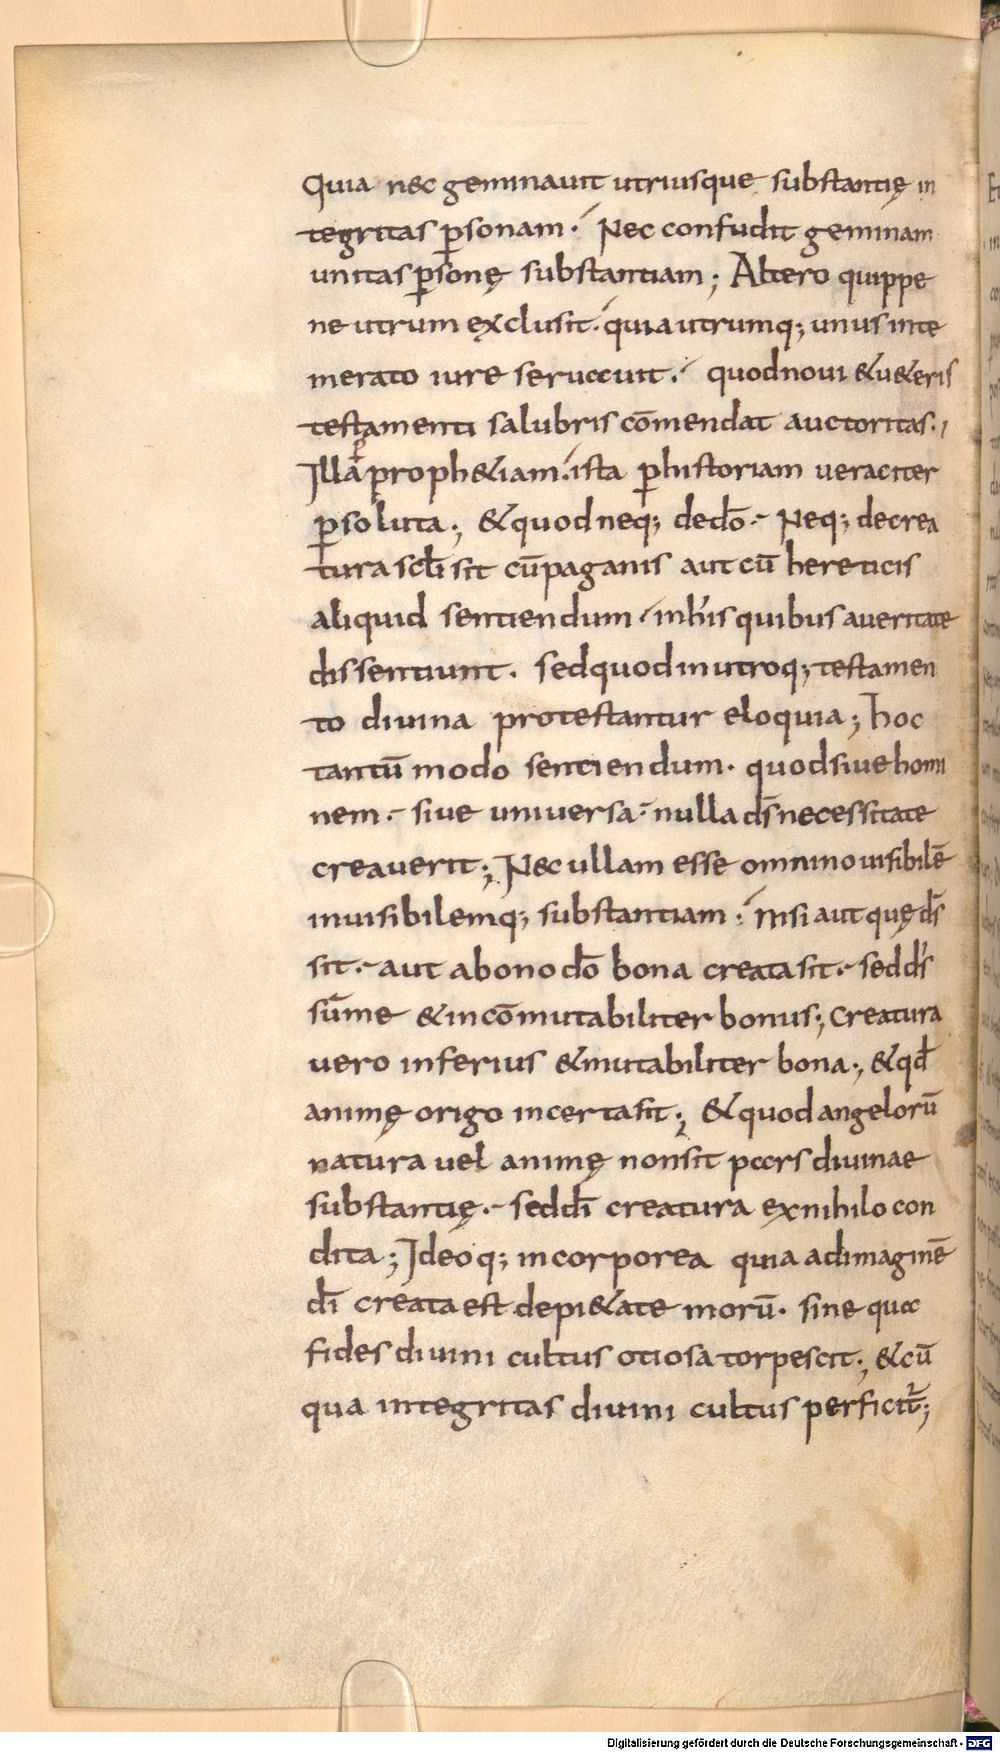 Quia nec geminauit utriusque substantię in
tegritas p̱sonam· Nec confudit geminam
unitas p̱sonę substantiam; Altero quippe
neutrum exclusit· quia utrumq; unus inte
merato iure seruauit· quod noui & u&eris
testamenti salubris cōmendat auctoritas·
p̱
Illa proph&iam· ista p̱ historiam ueraciter
p̱soluta; & quod neq; de dō· Neq; de crea
tura scłi sit cū paganis aut cū hereticis
aliquid sentiendum· in h̓is quibus a ueritate
dissentiunt· sed quod in utroq; testamen
to diuina protestantur eloquia; hoc
tantū modo sentiendum· quod siue homi
nem· siue uniuersa· nulla ds̄ necessitate
creauerit; Nec ullam esse omnino uisibilē
inuisibilemq; substantiam· nisi aut quę ds̄
sit· aut a bono dō bona creata sit· sed ds̄
sūme & incōmutabiliter bonus; Creatura
uero inferius & mutabiliter bona; & qđ
animę origo incerta sit; & quod angelorū
natura uel animę non sit pars diuinae
substantię· sed dī creatura ex nihilo con
dita; Ideoq; incorporea quia ad imaginē
dī creata est de pi&ate morū· sine qua
fides diuini cultus otiosa torpescit; & cū
qua integritas diuini cultus perficit᷑;
Digitalisierung gefördert durch die Deutsche Forschungsgemeinschaft - DFG